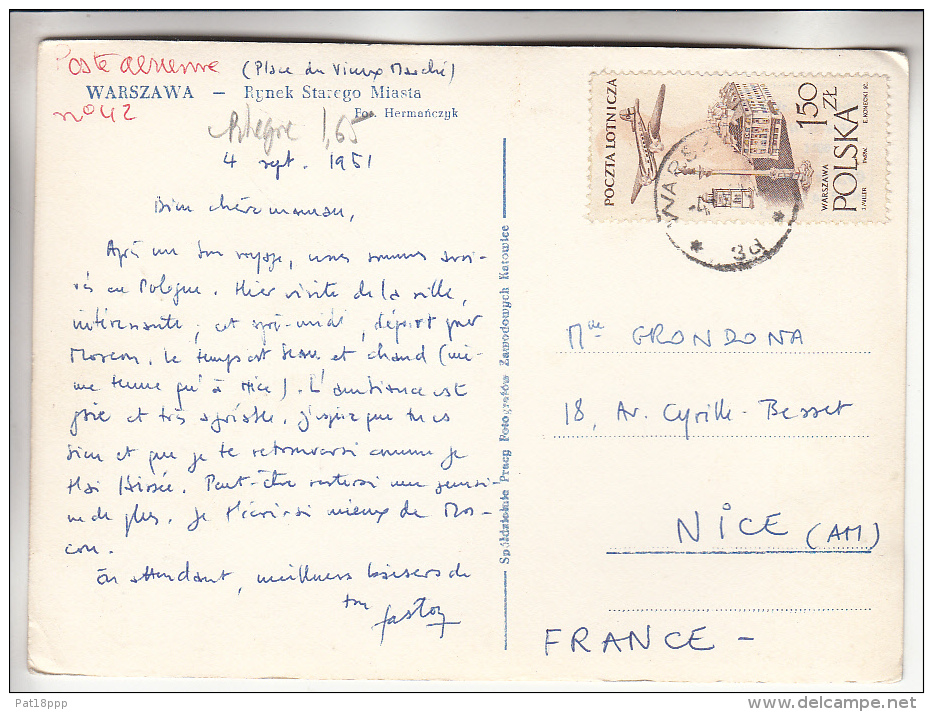 Poste aérienne (Place du Vieux Marché)
WARSZAWA — Rynek Starego Miasta
n° 42
Fot. Hermańczyk
1,65
4 sept. 1951
Bien chère maman,
Après un bon voyage, nous sommes arri-
vés en Pologne. Hier visite de la ville,
intéressante, et après-midi, départ pour
Moscou. Le temps est beau et chaud (mê-
me tenue qu'à Nice). L'ambiance est
gaie et très agréable. J'espère que tu es
bien et que je te retrouverai comme je
t'ai laissée. Peut-être resterai une semai-
ne de plus. Je t'écrirai mieux de Mos-
cou.
En attendant, meilleurs baisers de
ton Gaston
Spółdzielnia Pracy Fotografów Zawodowych Katowice
POCZTA LOTNICZA
WARSZAWA
POLSKA
1,50 ZŁ
Mme GRONDONA
18, Av. Cyrille-Besset
NICE (AM)
FRANCE —
Pat18ppp
www.delcampe.net